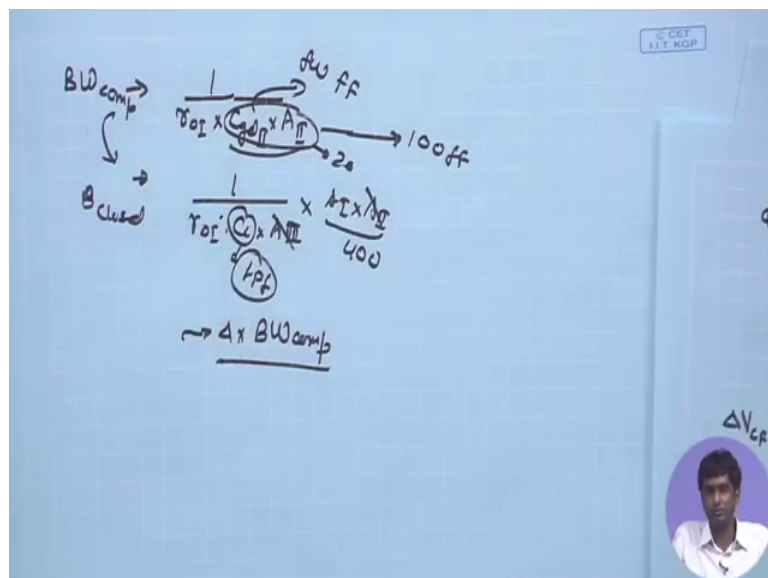 © CET
I.I.T. KGP
BW comp → 1 / r0I × CgdII × AII
few ff
→ 100ff
20
B closed → 1 / r0I · Cc × AII × AI × AII
400
1pf
→ 4 × BW comp
ΔV